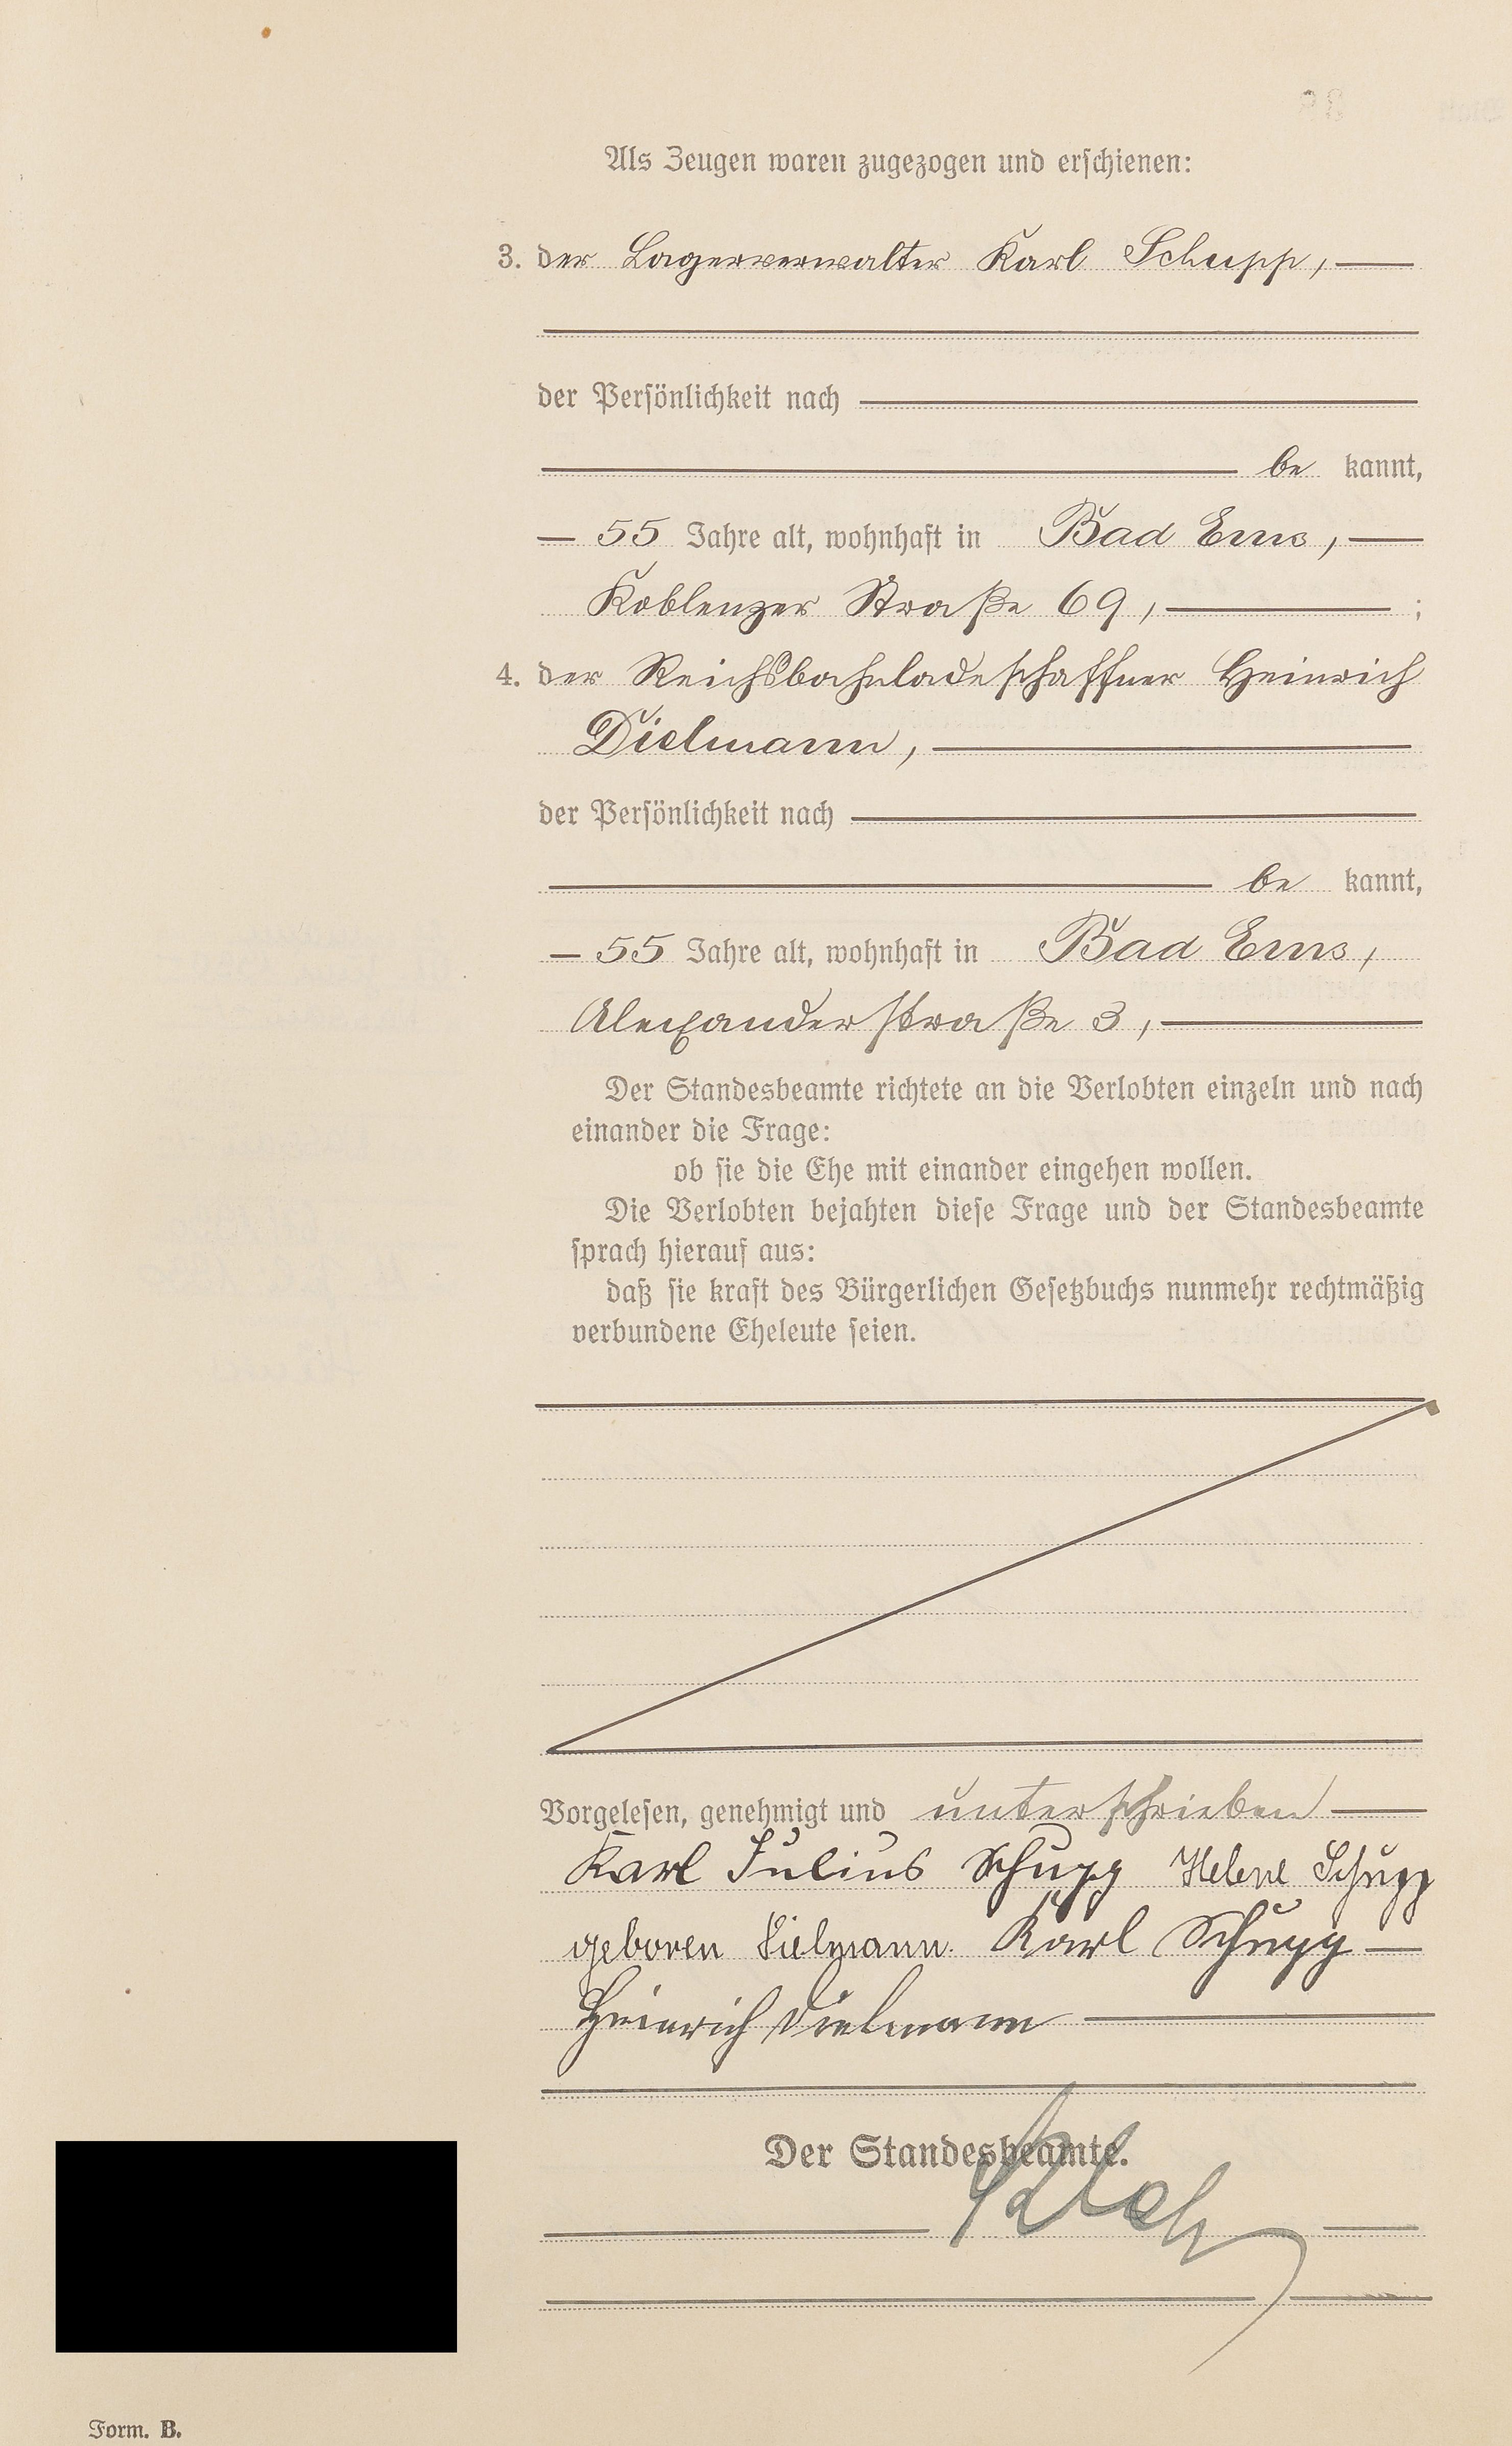 Als Zeugen waren zugezogen und erschienen:
3. der Lagerverwalter Karl Schupp,
der Persönlichkeit nach
be kannt,
55 Jahre alt, wohnhaft in Bad Ems,
Koblenzer Straße 69, ;
4. der Reichsbahnladeschaffner Heinrich
Dielmann,
der Persönlichkeit nach
be kannt,
55 Jahre alt, wohnhaft in Bad Ems,
Alexanderstraße 3,
Der Standesbeamte richtete an die Verlobten einzeln und nach
einander die Frage:
ob sie die Ehe mit einander eingehen wollen.
Die Verlobten bejahten diese Frage und der Standesbeamte
sprach hierauf aus:
daß sie kraft des Bürgerlichen Gesetzbuchs nunmehr rechtmäßig
verbundene Eheleute seien.
Vorgelesen, genehmigt und unterschrieben
Karl Julius Schupp Helene Schupp
geboren Dielmann. Karl Schupp
Heinrich Dielmann
Der Standesbeamte.
Form. B.